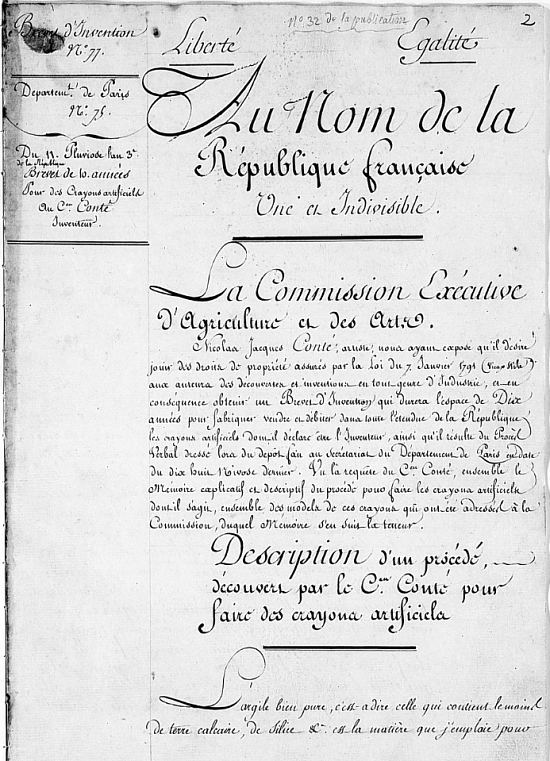 No 32 de la publication
2
Brevet d'Invention
No. 77.
Liberté
Egalité
Departemt. de Paris
No. 75.
Du 11 Pluviose l'an 3e
de la République
Brevet de 10. années
Pour des Crayons artificiels
Au Cen. Conté
Inventeur.
Au Nom de la
République française
Une et Indivisible.
La Commission Exécutive
d'Agriculture et des Arts.
Nicolas Jacques Conté, artiste, nous ayant exposé qu'il desire
jouir des droits de propriété assurés par la Loi du 7 Janvier 1791
aux auteurs des découvertes et inventions en tout genre d'Industrie, et en
conséquence obtenir un Brevet d'Invention qui durera l'espace de Dix
années pour fabriquer vendre et débiter dans toute l'étendue de la République
les crayons artificiels dont il déclare être l'Inventeur, ainsi qu'il résulte du Procès
Verbal dressé lors du dépôt fait au Secrétariat du Département de Paris en date
du dix huit Nivose dernier. Vu la requête du Cen. Conté, ensemble le
Mémoire explicatif et descriptif du procédé pour faire les crayons artificiels
dont il s'agit, ensemble des models de ces crayons qui ont été adressés à la
Commission, duquel Mémoire s'en suit la teneur.
Description d'un procédé,
découvert par le Cen. Conté pour
faire des crayons artificiels
L'argile bien pure, c'est à dire celle qui contient le moins
de terre calcaire, de silice &c. est la matière que j'emploie pour